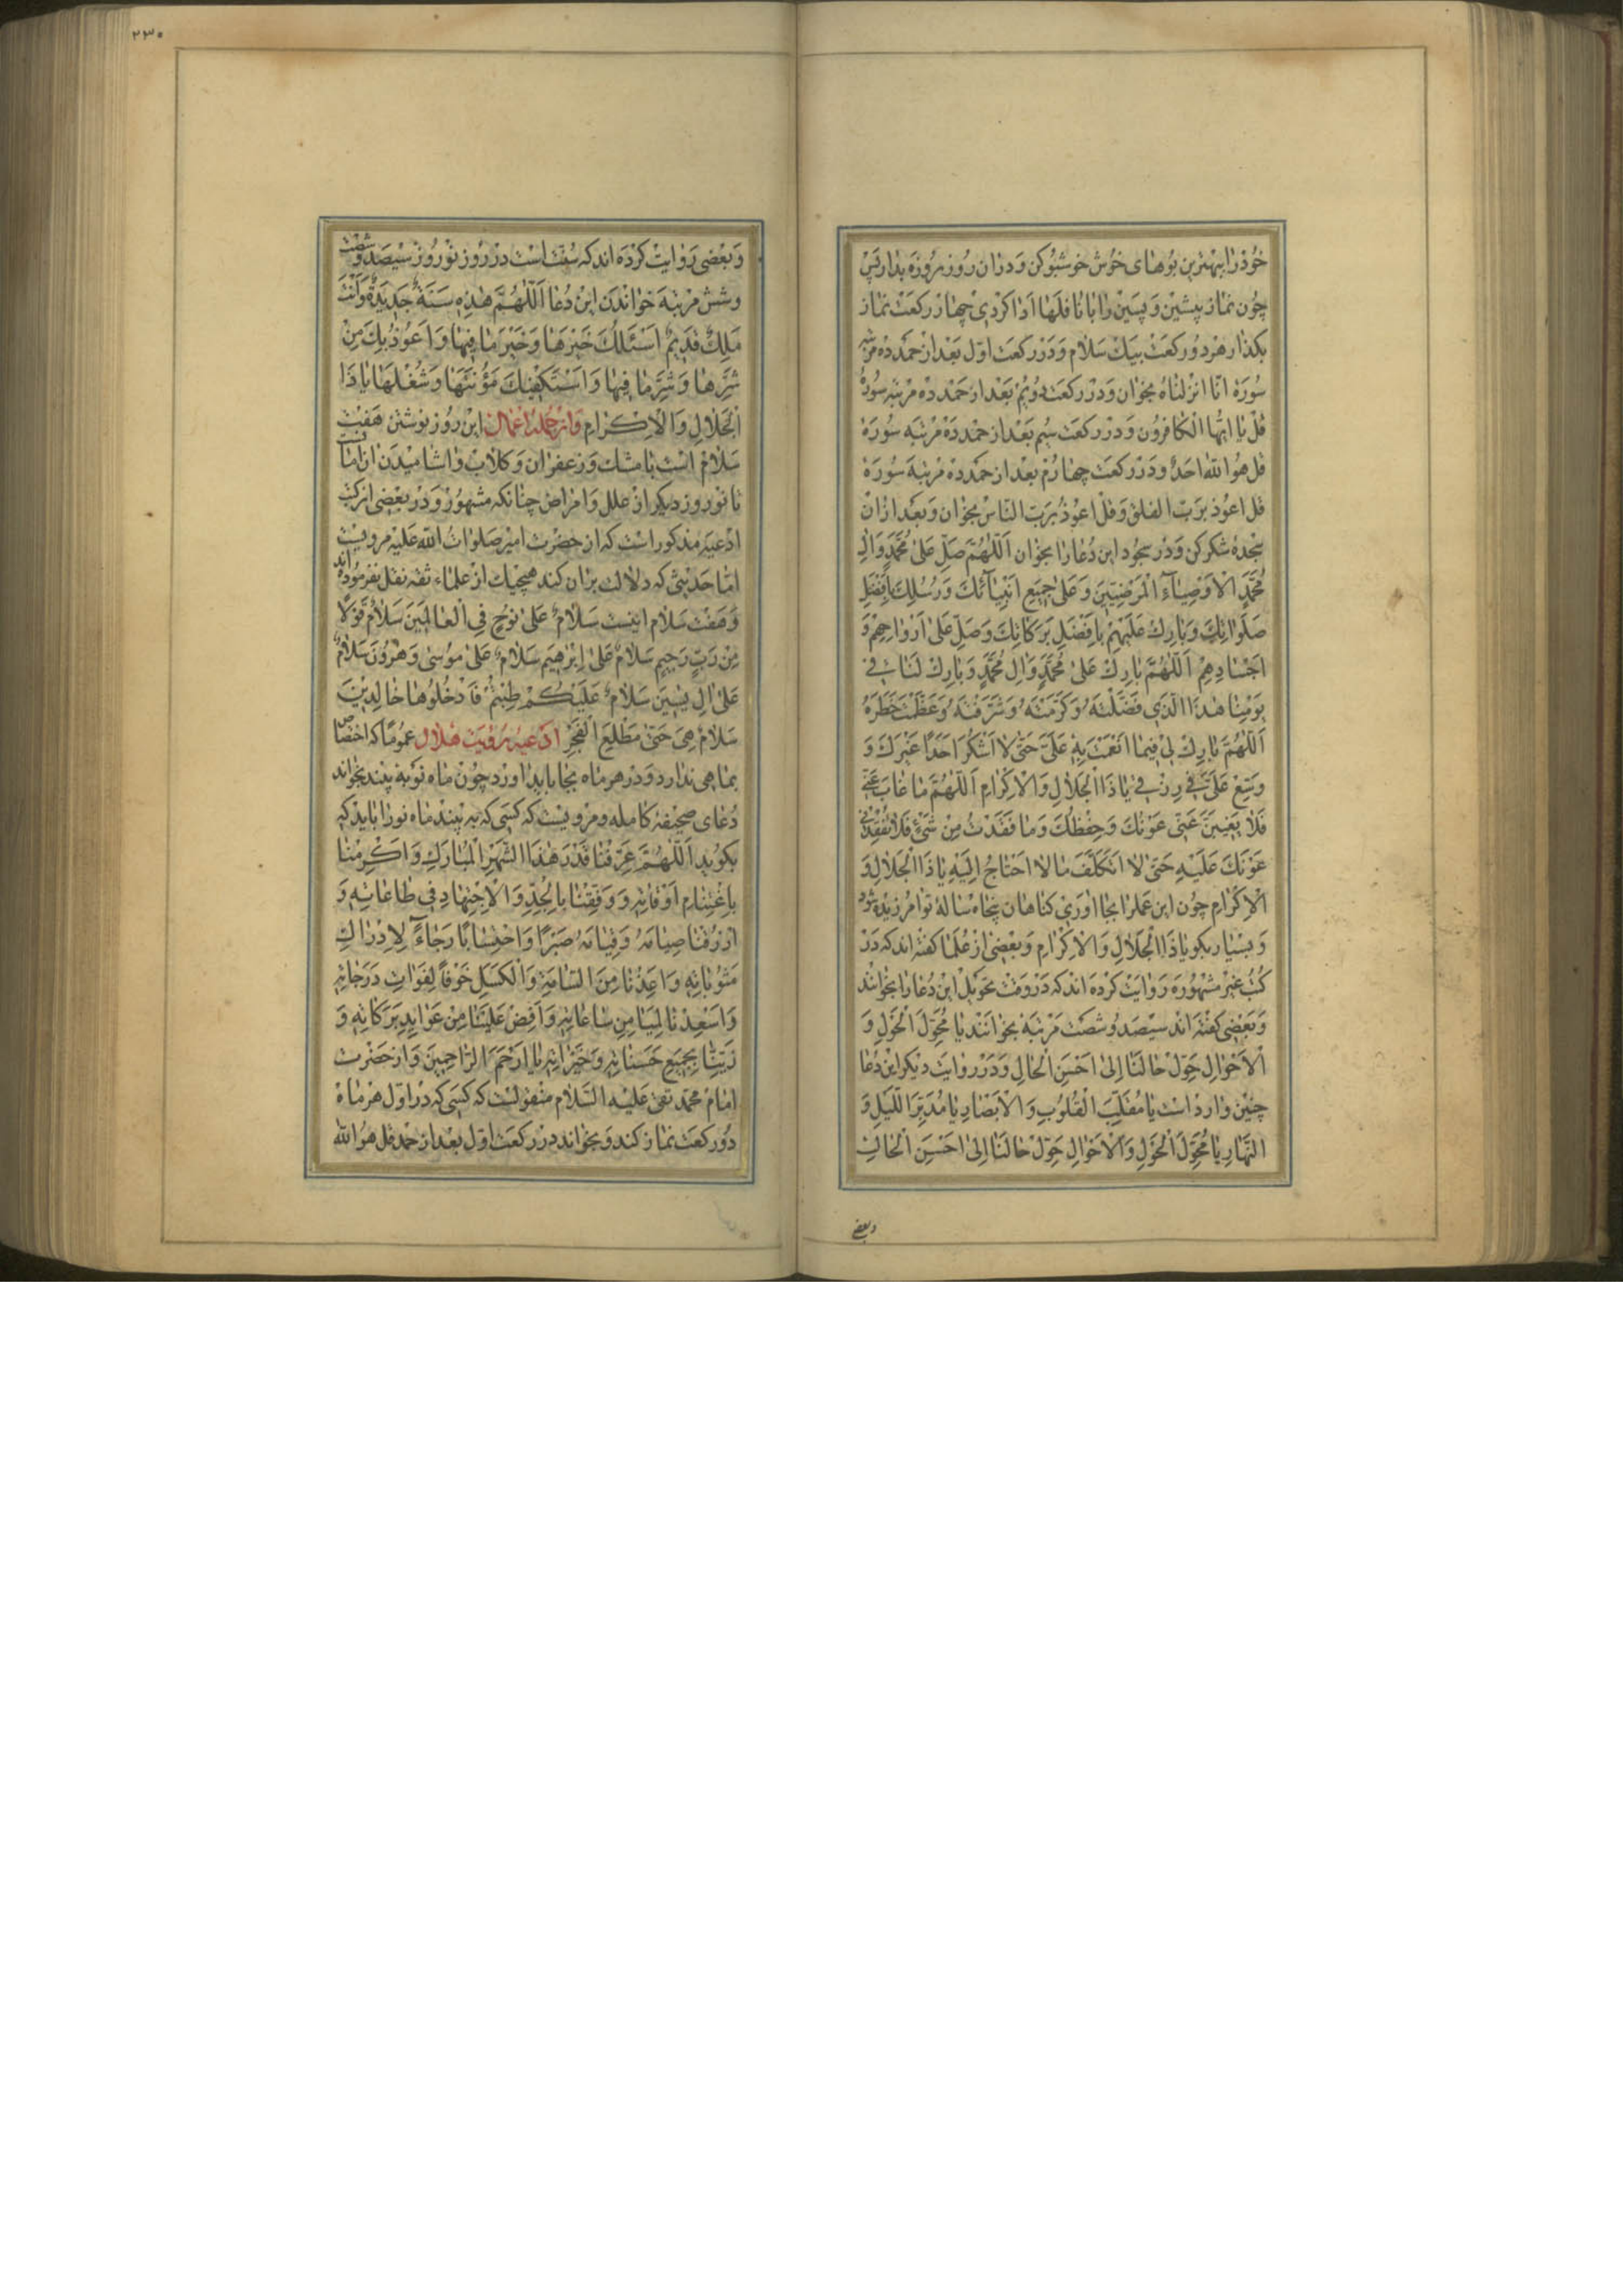 خود را ببهترین بوهای خوش خوشبو کن و در آن روز روزه بدار پس
چون نماز پیشین و پسین را با نافلها ادا کردی چهار رکعت نماز
بکذار هر دو رکعت بیک سلام و در رکعت اوّل بعد از حمد ده مرتبه
سوره انّا انزلناه بخوان و در رکعت دویّم بعد از حمد ده مرتبه سورهٔ
قل یا ایّها الکافرون و در رکعت سیم بعد از حمد ده مرتبه سوره
قل هو الله احد و در رکعت چهارم بعد از حمد ده مرتبه سوره
قل اعوذ بربّ الفلق و قل اعوذ بربّ النّاس بخوان و بعد از آن
سجده شکر کن و در سجود این دعا را بخوان اَللّٰهُمَّ صَلِّ عَلیٰ مُحَمَّدٍ وَالِ
مُحَمَّدٍ الْاَوْصِیٰاۤءِ الْمَرْضِیّینَ وَعَلیٰ جَمیعِ اَنْبِیٰاۤئِكَ وَرُسُلِكَ بِاَفْضَلِ
صَلَوٰاتِكَ وَبٰارِكْ عَلَیْهِمْ بِاَفْضَلِ بَرَكٰاتِكَ وَصَلِّ عَلیٰ اَرْوٰاحِهِمْ وَ
اَجْسٰادِهِمْ اَللّٰهُمَّ بٰارِكْ عَلیٰ مُحَمَّدٍ وَالِ مُحَمَّدٍ وَبٰارِكْ لَنٰا فی
یَوْمِنٰا هٰذَا الَّذی فَضَّلْتَهُ وَكَرَّمْتَهُ وَشَرَّفْتَهُ وَعَظَّمْتَ خَطَرَهُ
اَللّٰهُمَّ بٰارِكْ لی فیمٰا اَنْعَمْتَ بِهِ عَلَیَّ حَتّیٰ لٰا اَشْكُرَ اَحَدًا غَیْرَكَ وَ
وَسِّعْ عَلَیَّ فی رِزْقی یٰا ذَا الْجَلٰالِ وَالْاِكْرٰامِ اَللّٰهُمَّ مٰا غٰابَ عَنّی
فَلٰا یَغیبَنَّ عَنّی عَوْنُكَ وَحِفْظُكَ وَمٰا فَقَدْتُ مِنْ شَیْءٍ فَلٰا تُفْقِدْنی
عَوْنَكَ عَلَیْهِ حَتّیٰ لٰا اَتَكَلَّفَ مٰا لٰا اَحْتٰاجُ اِلَیْهِ یٰا ذَا الْجَلٰالِ وَ
الْاِكْرٰامِ چون این عمل را بجا آوری کناهان پنجاه سالهٔ تو آمرزیده شود
و بسیار بکو یٰا ذَا الْجَلٰالِ وَالْاِكْرٰامِ و بعضی از علما کفته اند که در
کتب غیر مشهوره روایت کرده اند که در وقت تحویل این دعا را بخوانند
و بعضی کفته اند سیصد و شصت مرتبه بخوانند یٰا مُحَوِّلَ الْحَوْلِ وَ
الْاَحْوٰالِ حَوِّلْ حٰالَنٰا اِلیٰ اَحْسَنِ الْحٰالِ و در روایت دیکر این دعا
چنین وارد است یٰا مُقَلِّبَ الْقُلُوبِ وَالْاَبْصٰارِ یٰا مُدَبِّرَ اللَّیْلِ وَ
النَّهٰارِ یٰا مُحَوِّلَ الْحَوْلِ وَالْاَحْوٰالِ حَوِّلْ حٰالَنٰا اِلیٰ اَحْسَنِ الْحٰالِ
وبعضی
٢٣٠
و بعضی روایت کرده اند که سنّت است در روز نوروز سیصد و شصت
و شش مرتبه خواندن این دعا اَللّٰهُمَّ هٰذِهِ سَنَةٌ جَدیدَةٌ وَاَنْتَ
مَلِكٌ قَدیمٌ اَسْئَلُكَ خَیْرَهٰا وَخَیْرَ مٰا فیهٰا وَاَعُوذُ بِكَ مِنْ
شَرِّهٰا وَشَرِّ مٰا فیهٰا وَاَسْتَكْفیكَ مَؤُنَتَهٰا وَشُغْلَهٰا یٰا ذَا
الْجَلٰالِ وَالْاِكْرٰامِ و از جمله اعمال این روز نوشتن هفت
سلام است با مشك و زعفران و کلاب و اشامیدن از اینست
تا نوروز دیکر از علل و امراض چنانکه مشهور و در بعضی از کتب
ادعیه مذکور است که از حضرت امیر صلوات الله علیه مرویست
امّا حدیثی که دلالت بر آن کند هیچیك از علماء ثقه نقل نفرموده اند
و هفت سلام اینست سَلٰامٌ عَلیٰ نُوحٍ فِی الْعٰالَمینَ سَلٰامٌ قَوْلًا
مِنْ رَبٍّ رَحیمٍ سَلٰامٌ عَلیٰ اِبْرٰهیمَ سَلٰامٌ عَلیٰ مُوسیٰ وَهٰرُونَ سَلٰامٌ
عَلیٰ الِ یٰسینَ سَلٰامٌ عَلَیْكُمْ طِبْتُمْ فَادْخُلُوهٰا خٰالِدینَ
سَلٰامٌ هِیَ حَتّیٰ مَطْلَعِ الْفَجْرِ ادعیه رؤیت هلال عموما که اختصاص
بماهی ندارد و در هر ماه بجا باید اورد چون ماه نو به بیند بخواند
دعای صحیفهٔ کامله و مرویست که کسی که به بیند ماه نو را باید که
بکوید اَللّٰهُمَّ عَرِّفْنٰا قَدْرَ هٰذَا الشَّهْرِ الْمُبٰارَكِ وَاَكْرِمْنٰا
بِاغْتِنٰامِ اَوْقٰاتِهِ وَوَفِّقْنٰا بِالْجِدِّ وَالْاِجْتِهٰادِ فی طٰاعٰاتِهِ وَ
ارْزُقْنٰا صِیٰامَهُ وَقِیٰامَهُ صَبْرًا وَاحْتِسٰابًا رَجٰاۤءً لِاِدْرٰاكِ
مَثُوبٰاتِهِ وَاَعِذْنٰا مِنَ السَّاٰمَةِ وَالْكَسَلِ خَوْفًا لِفَوٰاتِ دَرَجٰاتِهِ
وَاَسْعِدْنٰا لِیَنٰا مِنْ سٰاعٰاتِهِ وَاَفِضْ عَلَیْنٰا مِنْ عَوٰایِدِ بَرَكٰاتِهِ وَ
زَیِّنّٰا بِجَمیعِ حَسَنٰاتِهِ وَخَیْرٰاتِهِ یٰا اَرْحَمَ الرّٰاحِمینَ و از حضرت
امام محمّد تقی علیه السّلام منقولست که کسی که در اوّل هر ماه
دو رکعت نماز کند و بخواند در رکعت اوّل بعد از حمد قل هو الله